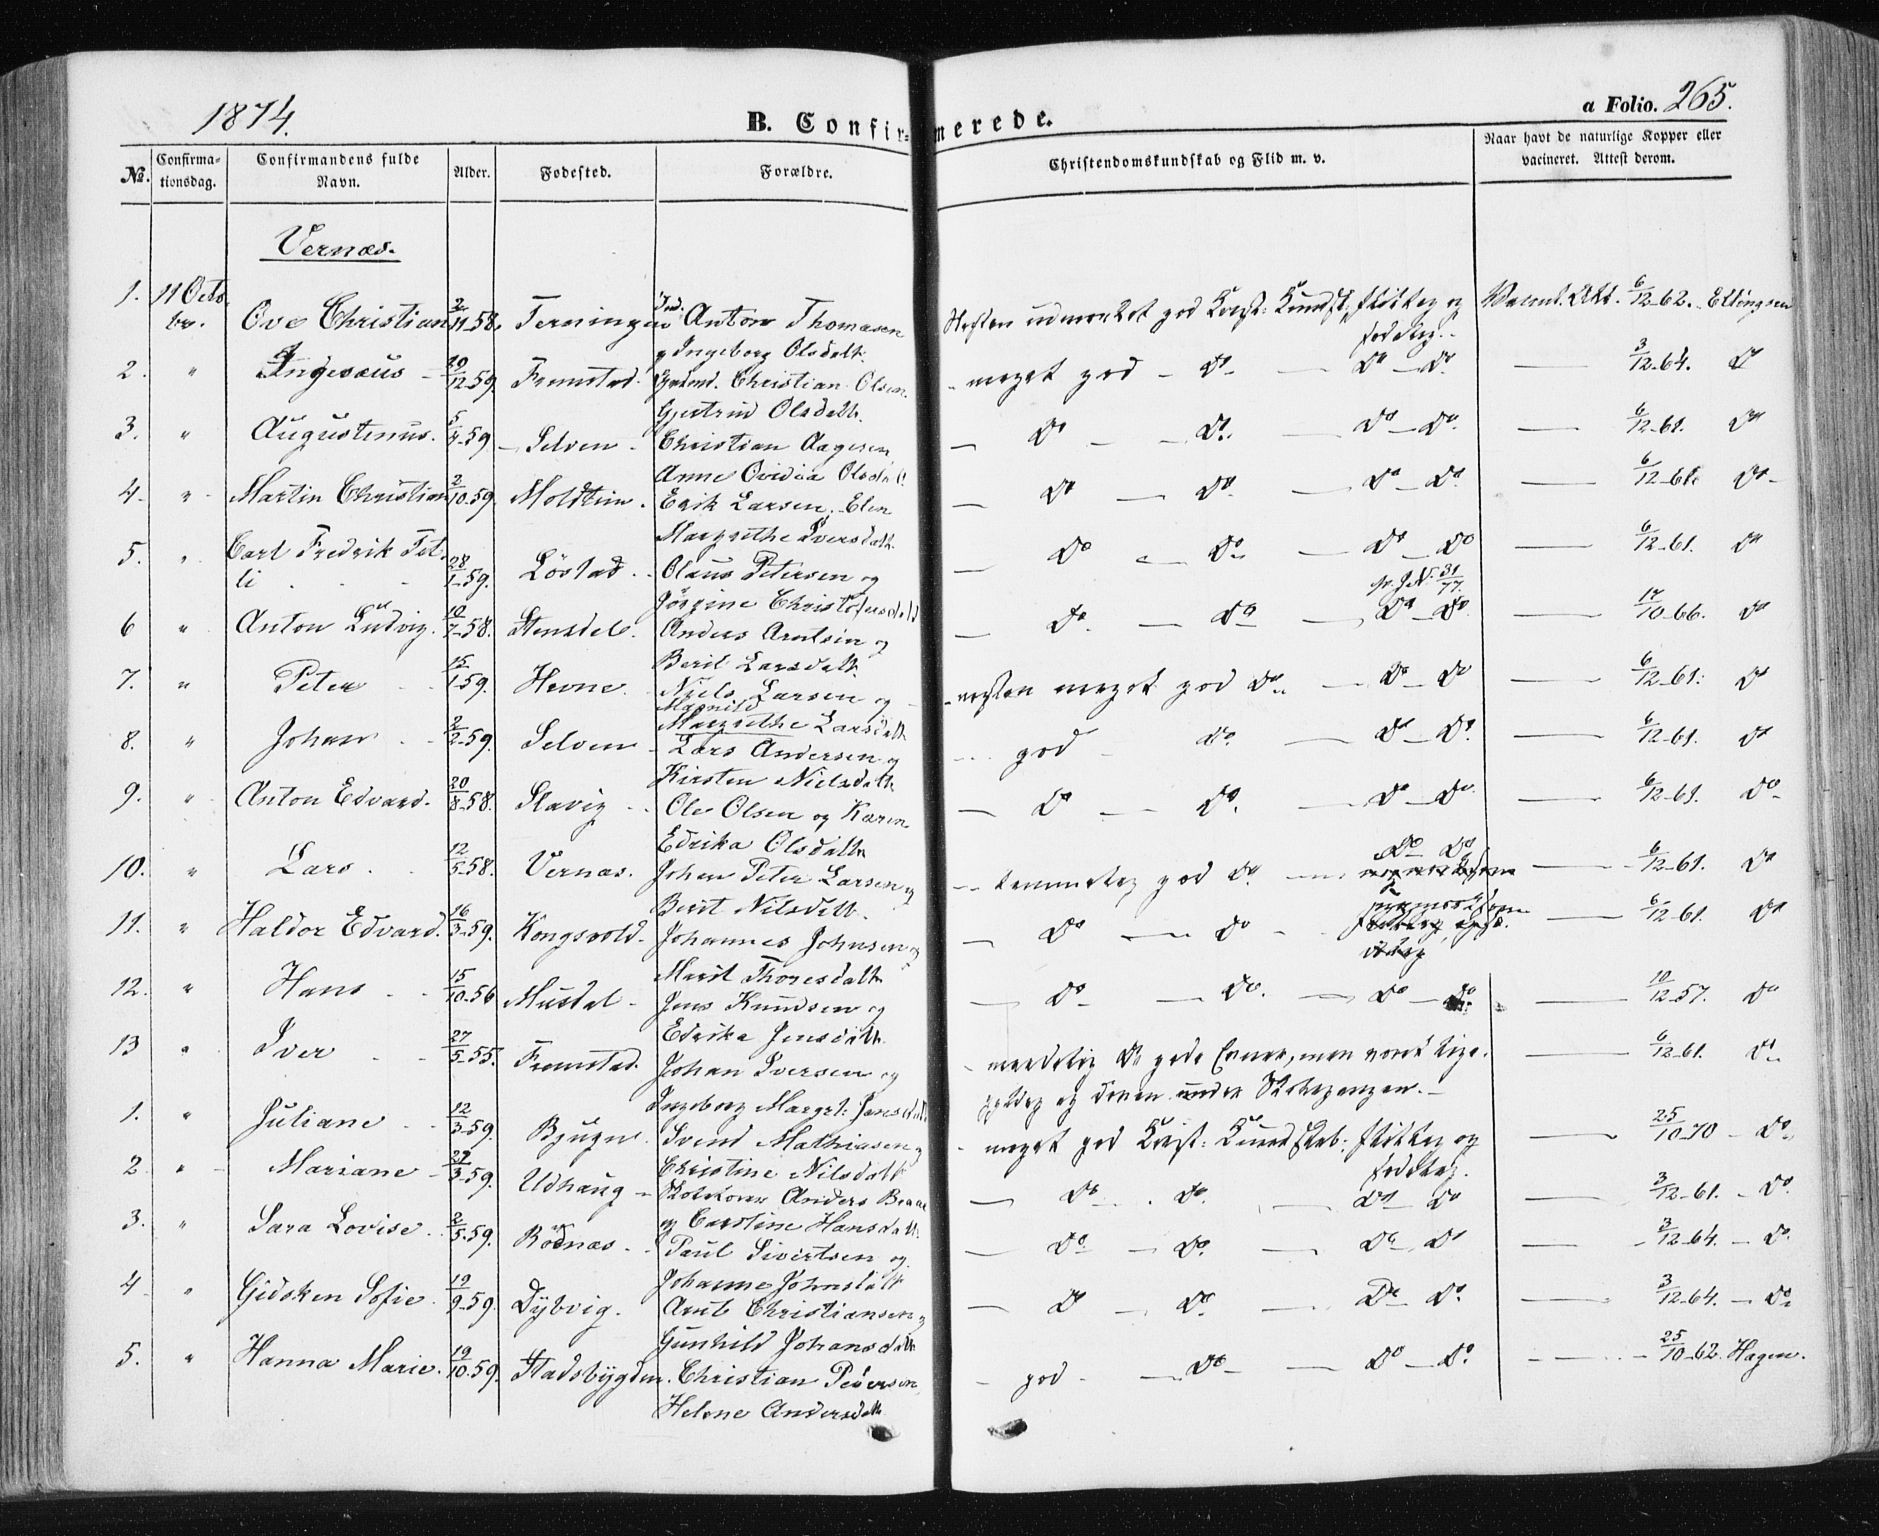 1874.
B. Confirmerede.
a Folio. 265.
No. Confirmationsdag. Confirmandens fulde Navn. Alder. Fødested. Forældre. Christendomskundskab og Flid m. v. Naar havt de naturlige Kopper eller vacineret. Attest derom.
Vernæs.
1. 11 Octobr. Ove Christian 2/11-58. Terningen Anton Thomasen
og Ingeborg Olsdatt. Næsten udmærket god Krist: Kundsk. flittig og sædelig. Vanml. Att. 6/12-62. Ellingsen
2. " Ingevæus 20/12-59. Fremstad. Christian Olsen
Gjertrud Olsdatt. meget god - Do - Do - Do 3/12-64. Do
3. " Augustinus. 5/4-59 Selven - Christian Aagesen
Anne Ovidia Olsdat. - Do - Do - Do - Do 6/12-61. Do
4. " Martin Christian 2/10-59. Moldtun. Erik Larsen, Elen
Margrethe Iversdatt. - Do - Do - Do - Do 6/12-61. Do
5. " Carl Fredrik Petli 28/1-59. Løstad. Olaus Petersen og
Jørgine Christofersdatt - Do - Do - Do - Do 6/12-61. Do
31/77.
6 " Anton Ludvig. 10/7-58. Stensdel. Anders Arntsen og
Berit Larsdatt. - Do - Do - Do - Do 17/10-66. Do
7. " Peter 15/1-59. Hevne. Niels Larsen og
Magnild
Margrethe Larsdatt - næsten meget god Do - Do - Do 6/12-61. Do
8. " Johan 2/2-59. Selven - Lars Andersen og
Kirsten Nielsdatt god - Do - Do - Do 6/12-61. Do
9. " Anton Edvard. 20/8-58. Slavig Ole Olsen og Karen
Edrika Olsdatt - Do - Do - Do - Do 6/12-61. Do
10. " Lars 12/5-58. Vernæs. Johan Peter Larsen og
Berit Nilsdatt. - temmelig god Do - Do Do 6/12-61. Do
11. " Haldor Edvard. 16/3-59. Kongsvold. Johannes Johnsen og
Marit Thoresdatt - Do - Do 6/12-61. Do
12. " Hans 15/10-56 Musdal - Jens Knudsen og
Edrika Jensdatt. - Do - Do - Do - Do 10/12-57. Do
13 " Iver 27/5-55. Fremstad. Johan Iversen og
Ingeborg Margrt: Jensdatt - maadelig Do gode Evner, men
og doven under Skolegangen. 6/12-61. Do
1. " Juliane 12/3-59. Bjugn. Svend Mathiasen og
Christine Nilsdatt - meget god Krist: Kundskab: flittig og sædelig. 25/10-70 - Do
2. " Mariane 27/3-59. Udhaug - Anders
og Carstine Hansdatt. - Do - Do Do Do 3/12-61. - Do
3. " Sara Lovise 2/5-59. Bødnæs. Paul Sivertsen og
Johanne Johnsdatt - Do - Do - Do Do 3/12-64. - Do
4 " Gidsken Sofie. 19/9-59. Dybvig. Arnt Christiansen og
Gunhild Johansdatt - Do - Do - Do Do 3/12-64. - Do
5. " Hanna Marie. 19/10-59. Stadsbygden. Christian Pedersen,
Helene Andersdatt - god - Do - Do - Do 25/10-62. Hagen.